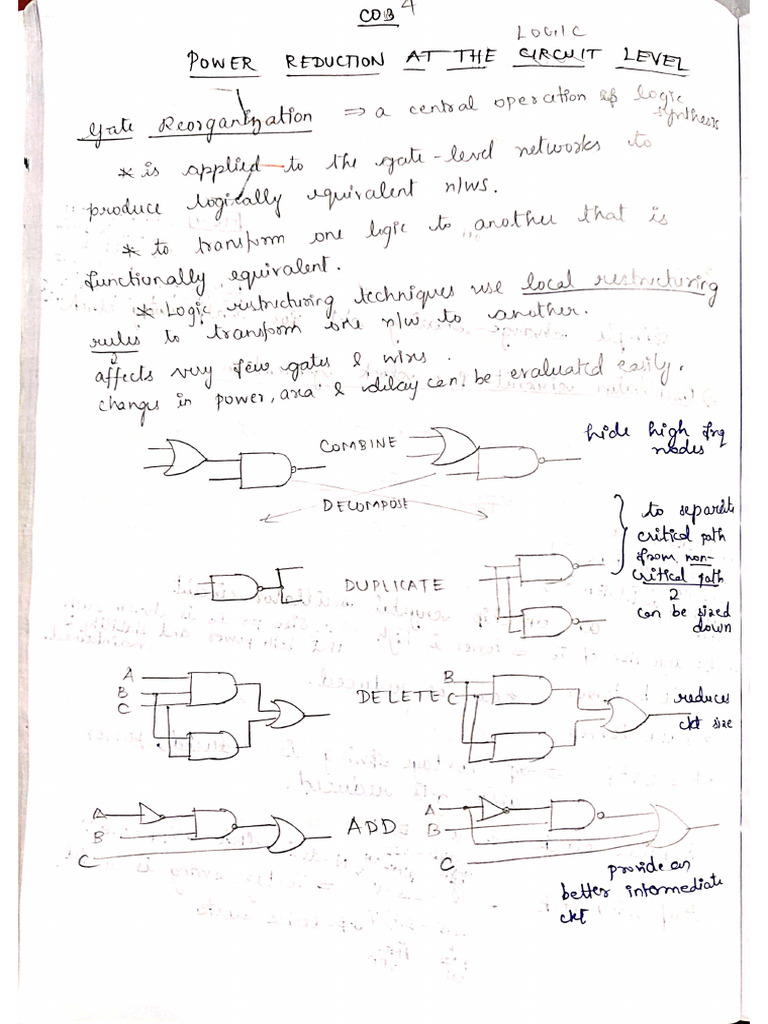 COB 4
LOGIC
POWER REDUCTION AT THE CIRCUIT LEVEL
Gate Reorganization ⇒ a central operation of logic
synthesis
* is applied to the gate-level networks to
produce logically equivalent n/ws.
* to transform one logic to another that is
functionally equivalent.
* Logic restructuring techniques use local restructuring
rules to transform one n/w to another.
affects very few gates & wires.
changes in power, area & delay can be evaluated easily.
COMBINE
hide high frq
nodes
DECOMPOSE
DUPLICATE
to separate
critical path
from non-
critical path
can be sized
down
A
B
C
DELETE
B
C
reduces
ckt size
A
B
C
ADD
A
B
C
provide an
better intermediate
ckt